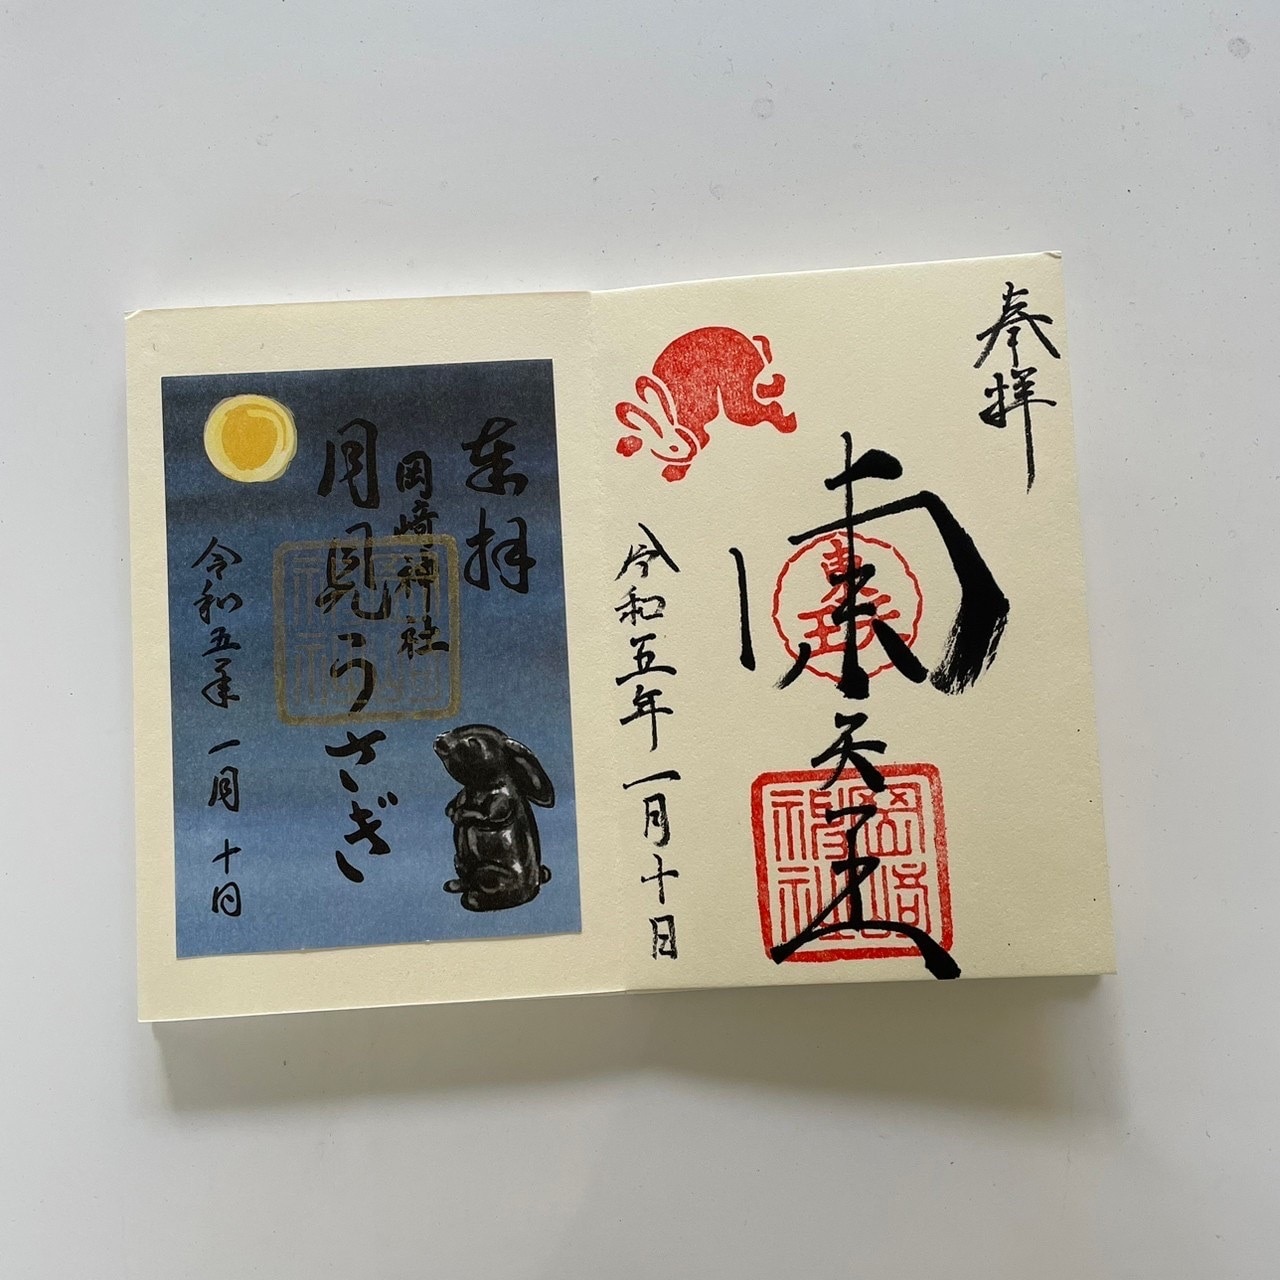 奉拝
東天王
東天王
岡崎神社
令和五年一月十日
奉拝
岡﨑神社
月見うさぎ
岡崎神社
令和五年一月十日